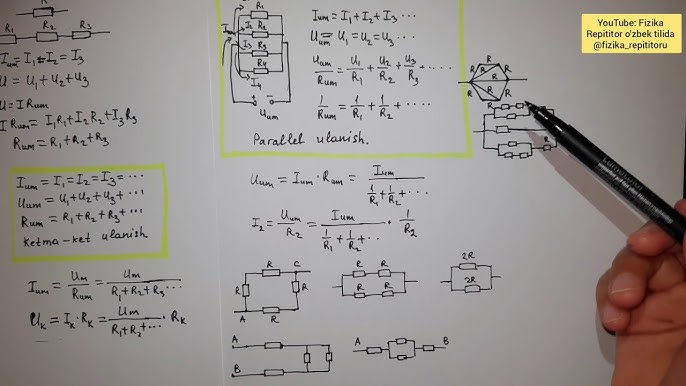 YouTube: Fizika
Repititor o'zbek tilida
@fizika_repititoru
R₁ R₂ R₃
Ium = I₁ = I₂ = I₃
U = U₁ + U₂ + U₃
U = I Rum
I Rum = I₁R₁ + I₂R₂ + I₃R₃
Rum = R₁ + R₂ + R₃
Ium = I₁ = I₂ = I₃ = ...
Uum = U₁ + U₂ + U₃ + ...
Rum = R₁ + R₂ + R₃ + ...
Ketma-ket ulanish
Ium = Um/Rum = Um/(R₁ + R₂ + R₃ ...)
Uk = Ik · Rk = Um/(R₁ + R₂ + ...) · Rk
Ium R₁
I₁ R₂
I₃ R₃
R₄
I₄
+ -
Uum
Ium = I₁ + I₂ + I₃ ...
Uum = U₁ = U₂ = U₃ ...
Uum/Rum = U₁/R₁ + U₂/R₂ + U₃/R₃ + ...
1/Rum = 1/R₁ + 1/R₂ + ...
Parallel ulanish.
Uum = Ium · Rum = Ium/(1/R₁ + 1/R₂ + ...)
I₂ = Uum/R₂ = Ium/(1/R₁ + 1/R₂ + ..) · 1/R₂
R R R
R R
R R
R R
R
R C
R R
A R
R R
R R
2R
2R
A
B
A B